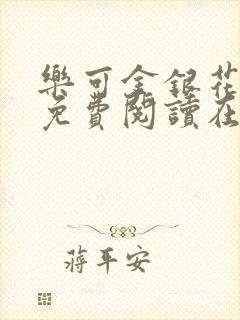 樂可金銀花
免費閱讀在
蔣平安